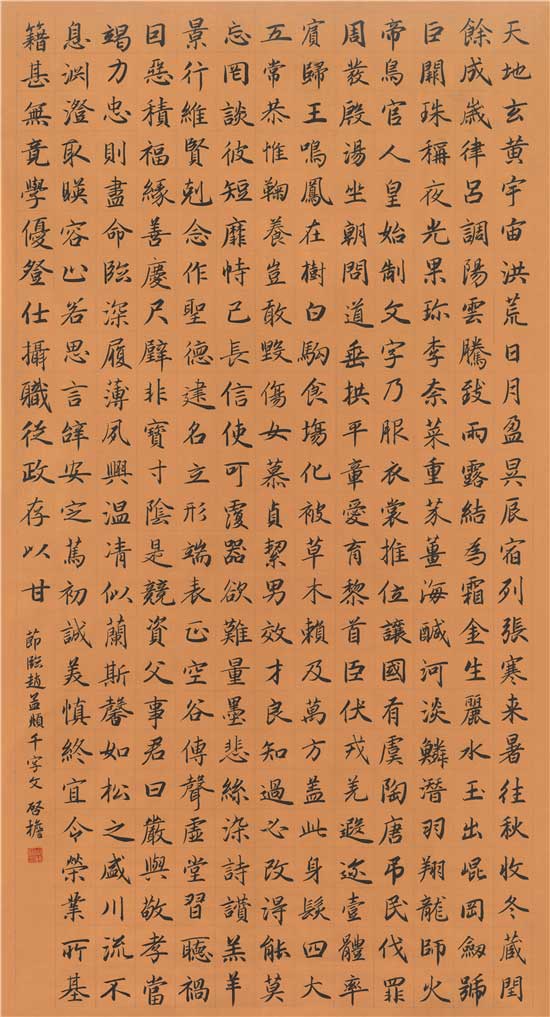 天地玄黄宇宙洪荒日月盈昃辰宿列張寒来暑往秋收冬蔵閏
餘成嵗律吕調陽雲騰致雨露結為霜金生麗水玉出崐岡劔號
巨闕珠稱夜光果珎李奈菜重芥薑海醎河淡鱗潜羽翔龍師火
帝鳥官人皇始制文字乃服衣裳推位讓國有虞陶唐弔民伐罪
周發殷湯坐朝問道垂拱平章愛育黎首臣伏戎羌遐迩壹體率
賓歸王鳴鳳在樹白駒食塲化被草木賴及萬方盖此身髮四大
五常恭惟鞠養豈敢毀傷女慕貞絜男效才良知過必改得能莫
忘罔談彼短靡恃己長信使可覆器欲難量墨悲絲染詩讃羔羊
景行維賢剋念作聖德建名立形端表正空谷傳聲虚堂習聴禍
因惡積福緣善慶尺璧非寶寸陰是競資父事君曰嚴與敬孝當
竭力忠則盡命臨深履薄夙興温凊似蘭斯馨如松之盛川流不
息渊澄取暎容止若思言辭安定篤初誠美慎終宜令榮業所基
籍甚無竟學優登仕攝職従政存以甘
節臨趙孟頫千字文 啓